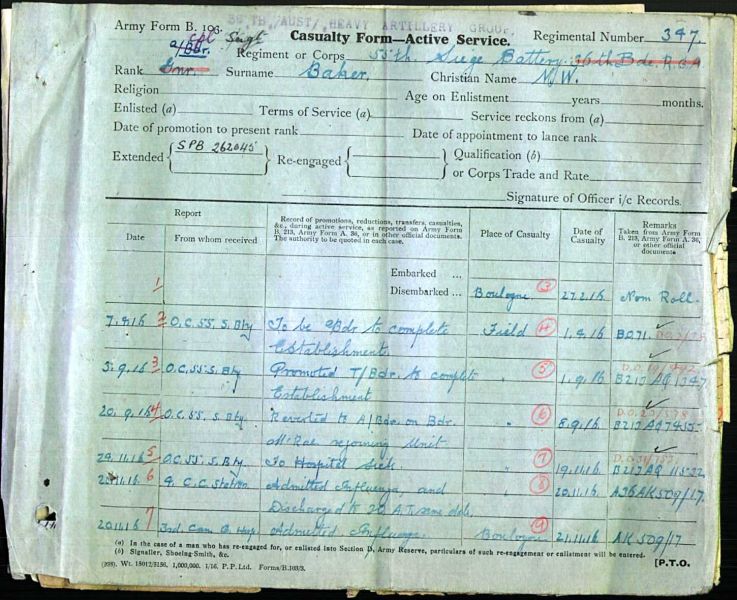 Army Form B. 103.
36TH /AUST/ HEAVY ARTILLERY GROUP.
Casualty Form—Active Service.
Regimental Number 347.
Cpl Sergt
a/Bdr.
Regiment or Corps 55th Siege Battery. 36th Bde. R.G.A
Rank Gnr. Surname Baker. Christian Name W.
Religion Age on Enlistment years months.
Enlisted (a) Terms of Service (a) Service reckons from (a)
Date of promotion to present rank Date of appointment to lance rank
Extended SPB 262045 Re-engaged Qualification (b)
or Corps Trade and Rate
Signature of Officer i/c Records.
Report
Date From whom received
Record of promotions, reductions, transfers, casualties, &c., during active service, as reported on Army Form B. 213, Army Form A. 36, or in other official documents. The authority to be quoted in each case.
Place of Casualty
Date of Casualty
Remarks
Taken from Army Form B. 213, Army Form A. 36, or other official documents
Embarked ...
1 Disembarked ... Boulogne 3 27.2.16 Nom Roll.
7.9.16 2 O.C. 55. S. Bty To be Bdr to complete Field 4 1.9.16 BD71.
Establishment.
5.9.16 3 O.C. 55. S. Bty Promoted T/Bdr. to complete " 5 1.9.16 B213 AQ 1347
Establishment
20.9.16 4 O.C. 55. S. Bty. Reverted to A/Bdr. on Bdr. " 6 8.9.16 B213
McRae rejoining Unit
24.11.16 5 O.C. 55. S. Bty. To Hospital Sick. " 7 19.11.16 B213 AQ
6 C.C. Station Admitted Influenza, and " 8 20.11.16 A36 AK 509/17.
Discharged to 20 A.T. same date.
20.11.16 7 3rd Can. G. Hosp Admitted Influenza. Boulogne 9 21.11.16 AK 509/17
(a) In the case of a man who has re-engaged for, or enlisted into Section D, Army Reserve, particulars of such re-engagement or enlistment will be entered.
(b) Signaller, Shoeing-Smith, &c.
Wt. 15012/5156. 1,000,000. 1/16. P. P. Ltd. Forms/B.103/3.
[P.T.O.